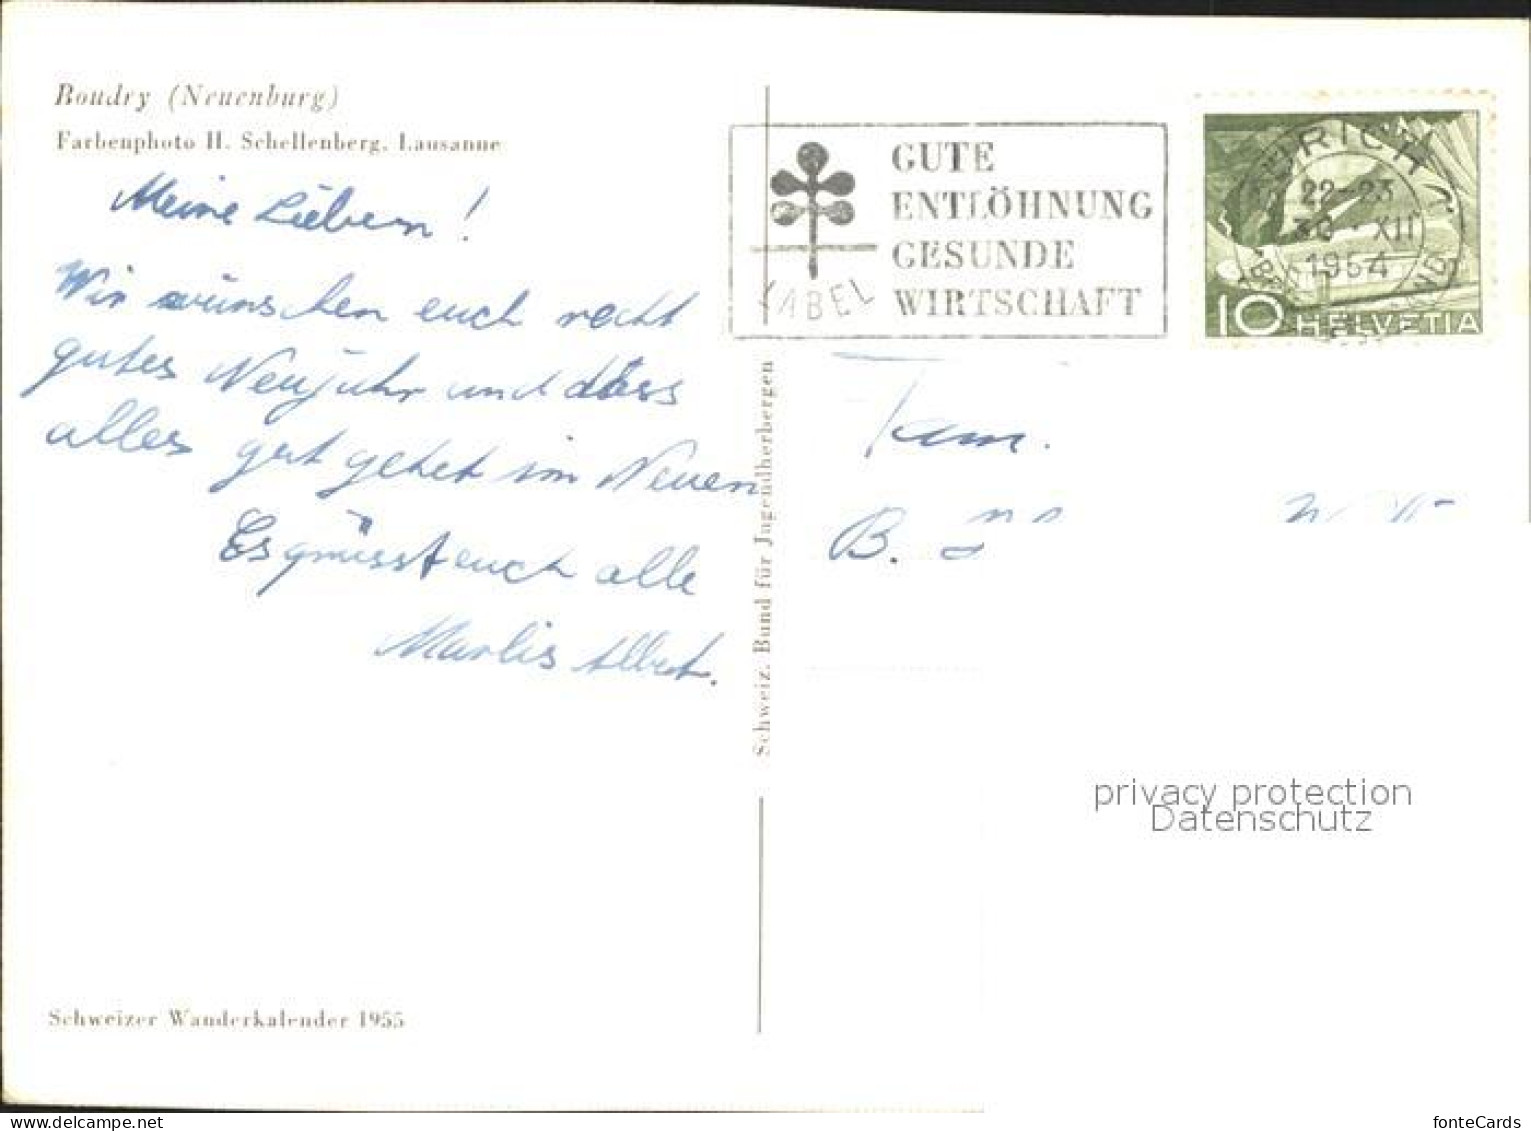 Boudry (Neuenburg)
Farbenphoto H. Schellenberg, Lausanne
Meine Lieben!
Wir wünschen euch recht
gutes Neujahr und dass
alles gut gehet im Neuen
Es grüsst euch alle
Marlis Albert.
Schweizer Wanderkalender 1955
Schweiz. Bund für Jugendherbergen
GUTE
ENTLÖHNUNG
GESUNDE
WIRTSCHAFT
LABEL
ZÜRICH 1
22-23
30.XII
1954
10 HELVETIA
Fam.
B.
privacy protection
Datenschutz
fonteCards
www.delcampe.net